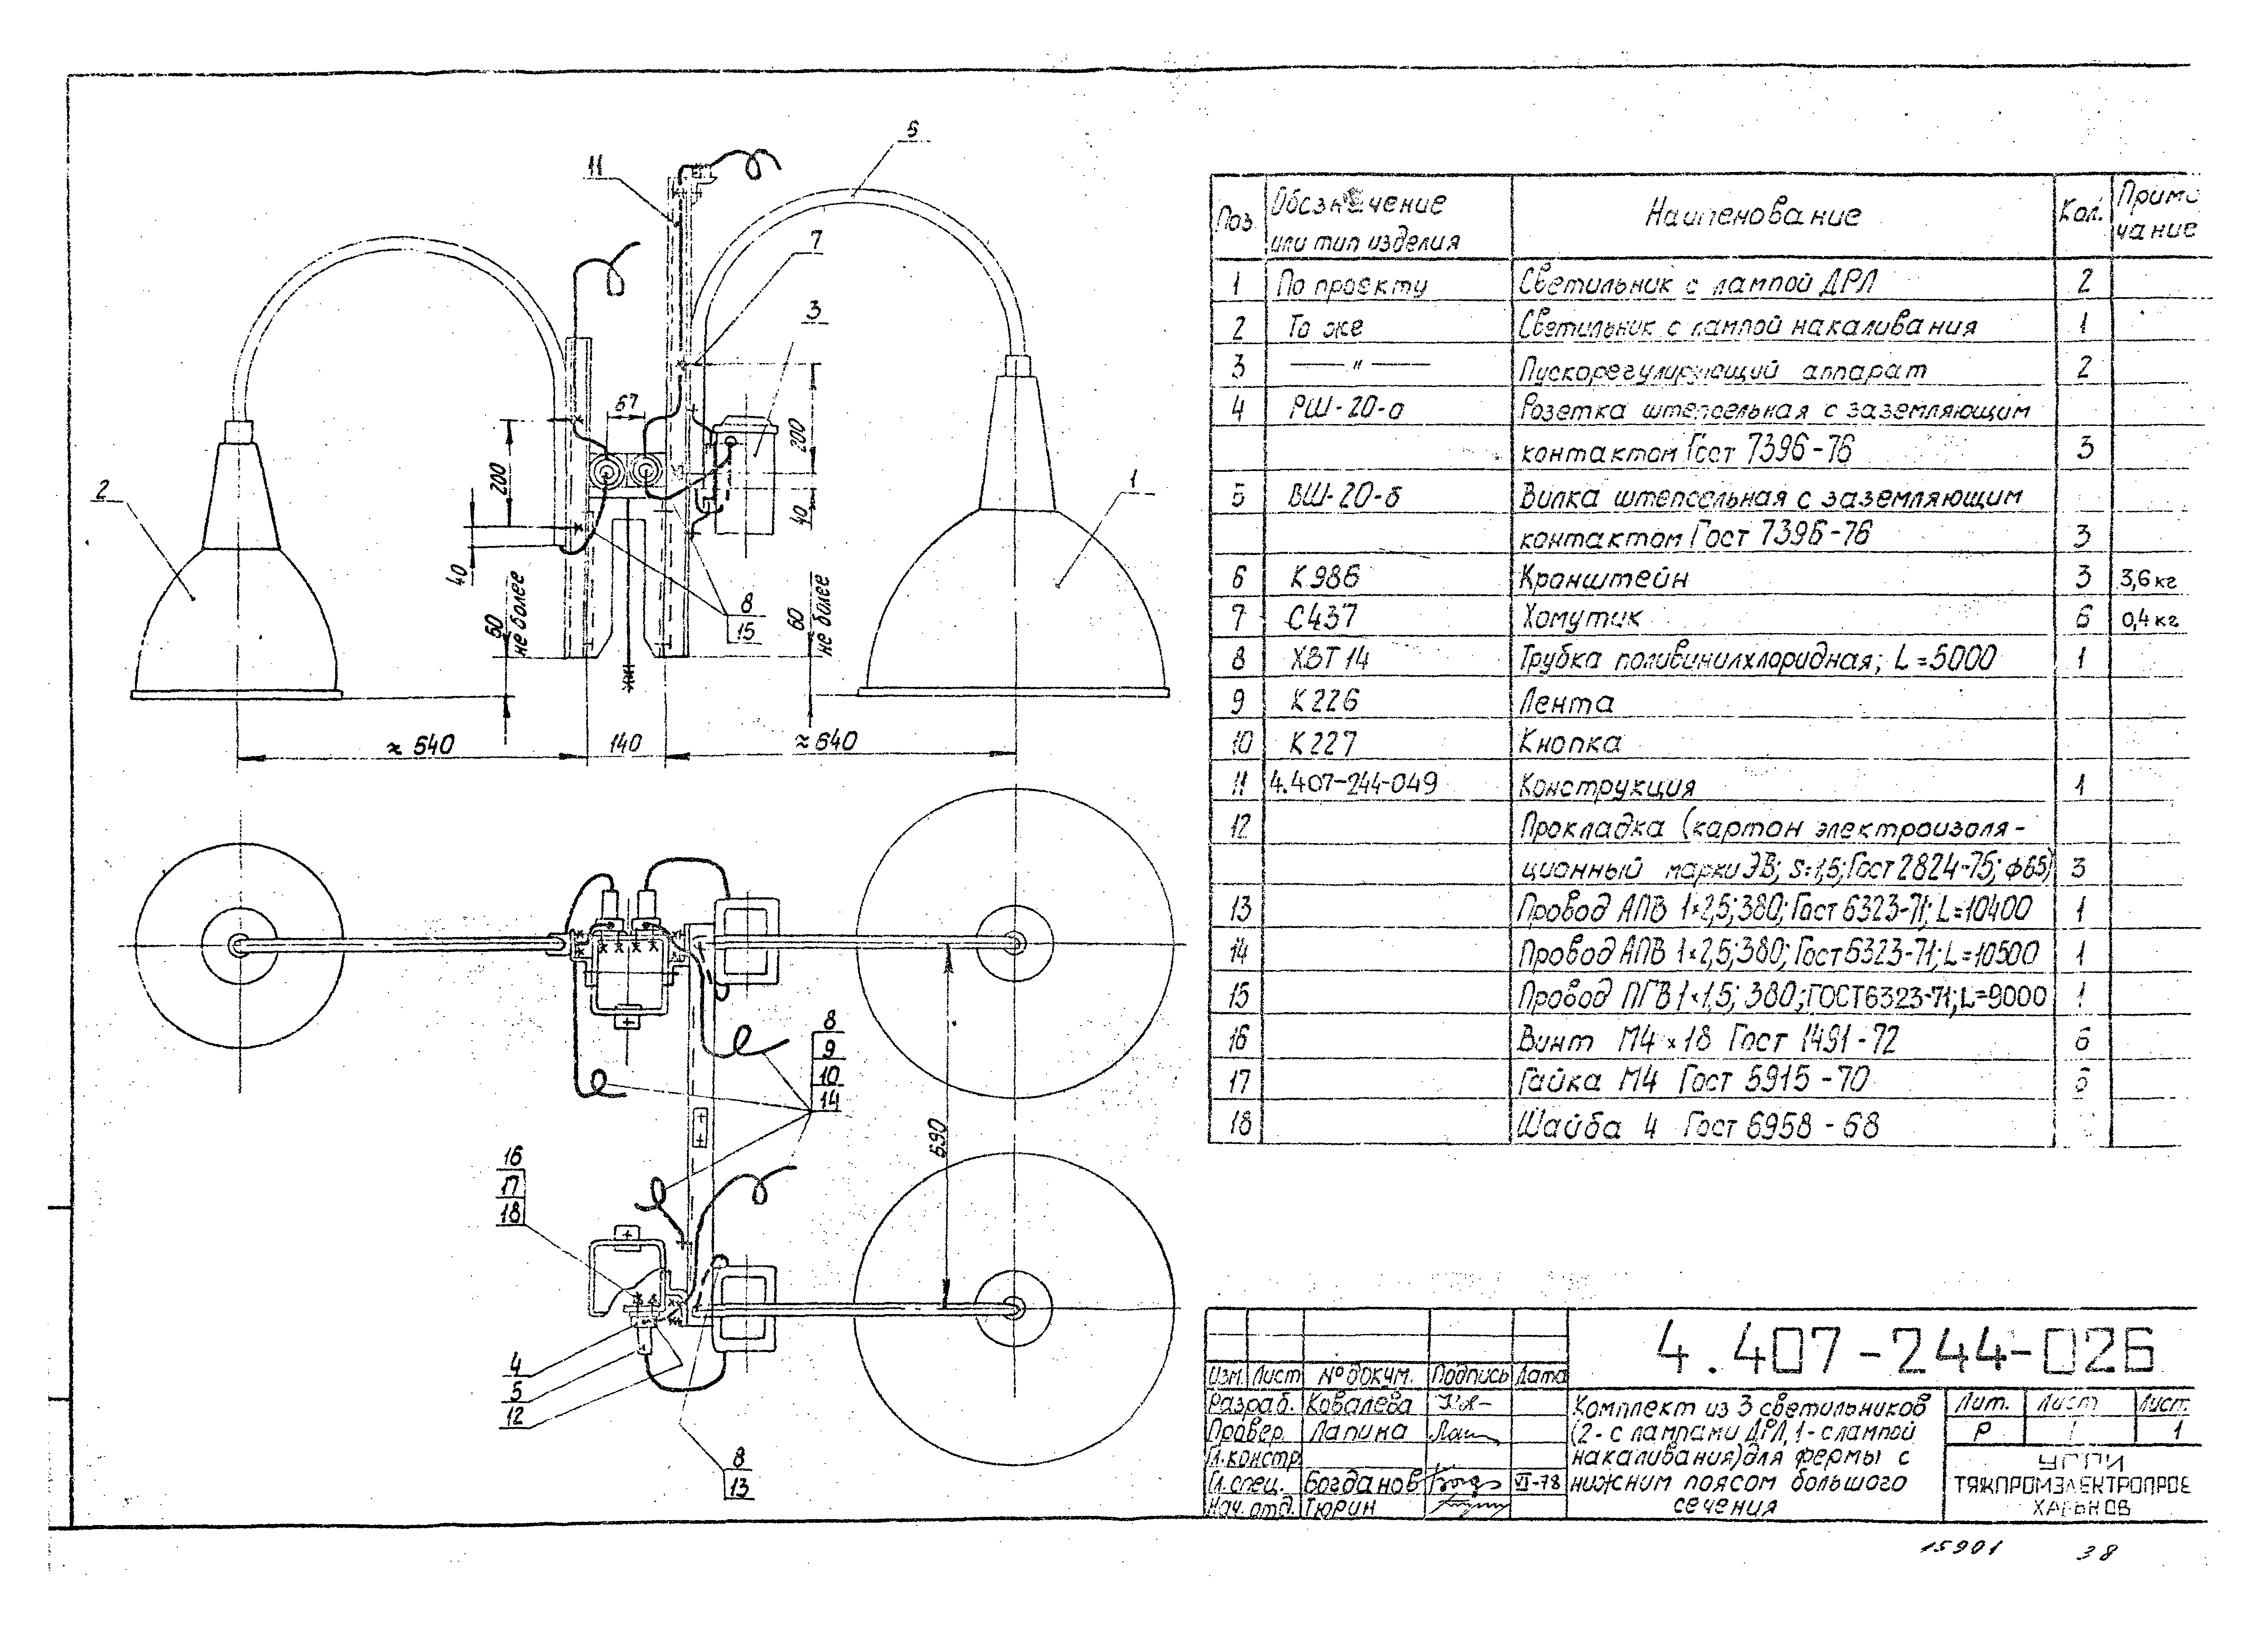 6
11
7
3
67
200
200
40
40
2
1
60
не более
60
не более
8
15
≈ 640
140
≈ 640
8
9
10
14
690
16
17
18
4
5
12
8
13
Поз. Обозначение или тип изделия Наименование Кол. Приме чание
1 По проекту Светильник с лампой ДРЛ 2
2 То же Светильник с лампой накаливания 1
3 — " — Пускорегулирующий аппарат 2
4 РШ-20-а Розетка штепсельная с заземляющим
контактом Гост 7396-76 3
5 ВШ-20-б Вилка штепсельная с заземляющим
контактом Гост 7396-76 3
6 К986 Кронштейн 3 3,6 кг
7 С437 Хомутик 6 0,4 кг
8 ХВТ 14 Трубка поливинилхлоридная; L=5000 1
9 К226 Лента
10 К227 Кнопка
11 4.407-244-049 Конструкция 1
12 Прокладка (картон электроизоля-
ционный марки ЭВ; S=1,5; Гост 2824-75; ф65) 3
13 Провод АПВ 1×2,5; 380; Гост 6323-71; L=10400 1
14 Провод АПВ 1×2,5; 380; Гост 6323-71; L=10500 1
15 Провод ПГВ 1×1,5; 380; ГОСТ 6323-71; L=9000 1
16 Винт М4×18 Гост 1491-72 6
17 Гайка М4 Гост 5915-70 6
18 Шайба 4 Гост 6958-68
4.407-244-026
Изм. Лист № докум. Подпись Дата
Разраб. Ковалева
Провер. Лапина
Гл. констр.
Гл. спец. Богданов VI-78
Нач. отд. Тюрин
Комплект из 3 светильников
(2- с лампами ДРЛ, 1- с лампой
накаливания) для фермы с
нижним поясом большого
сечения
Лит. Лист Лист.
Р 1
УГПИ
ТЯЖПРОМЭЛЕКТРОПРОЕ
ХАРЬКОВ
15901 38